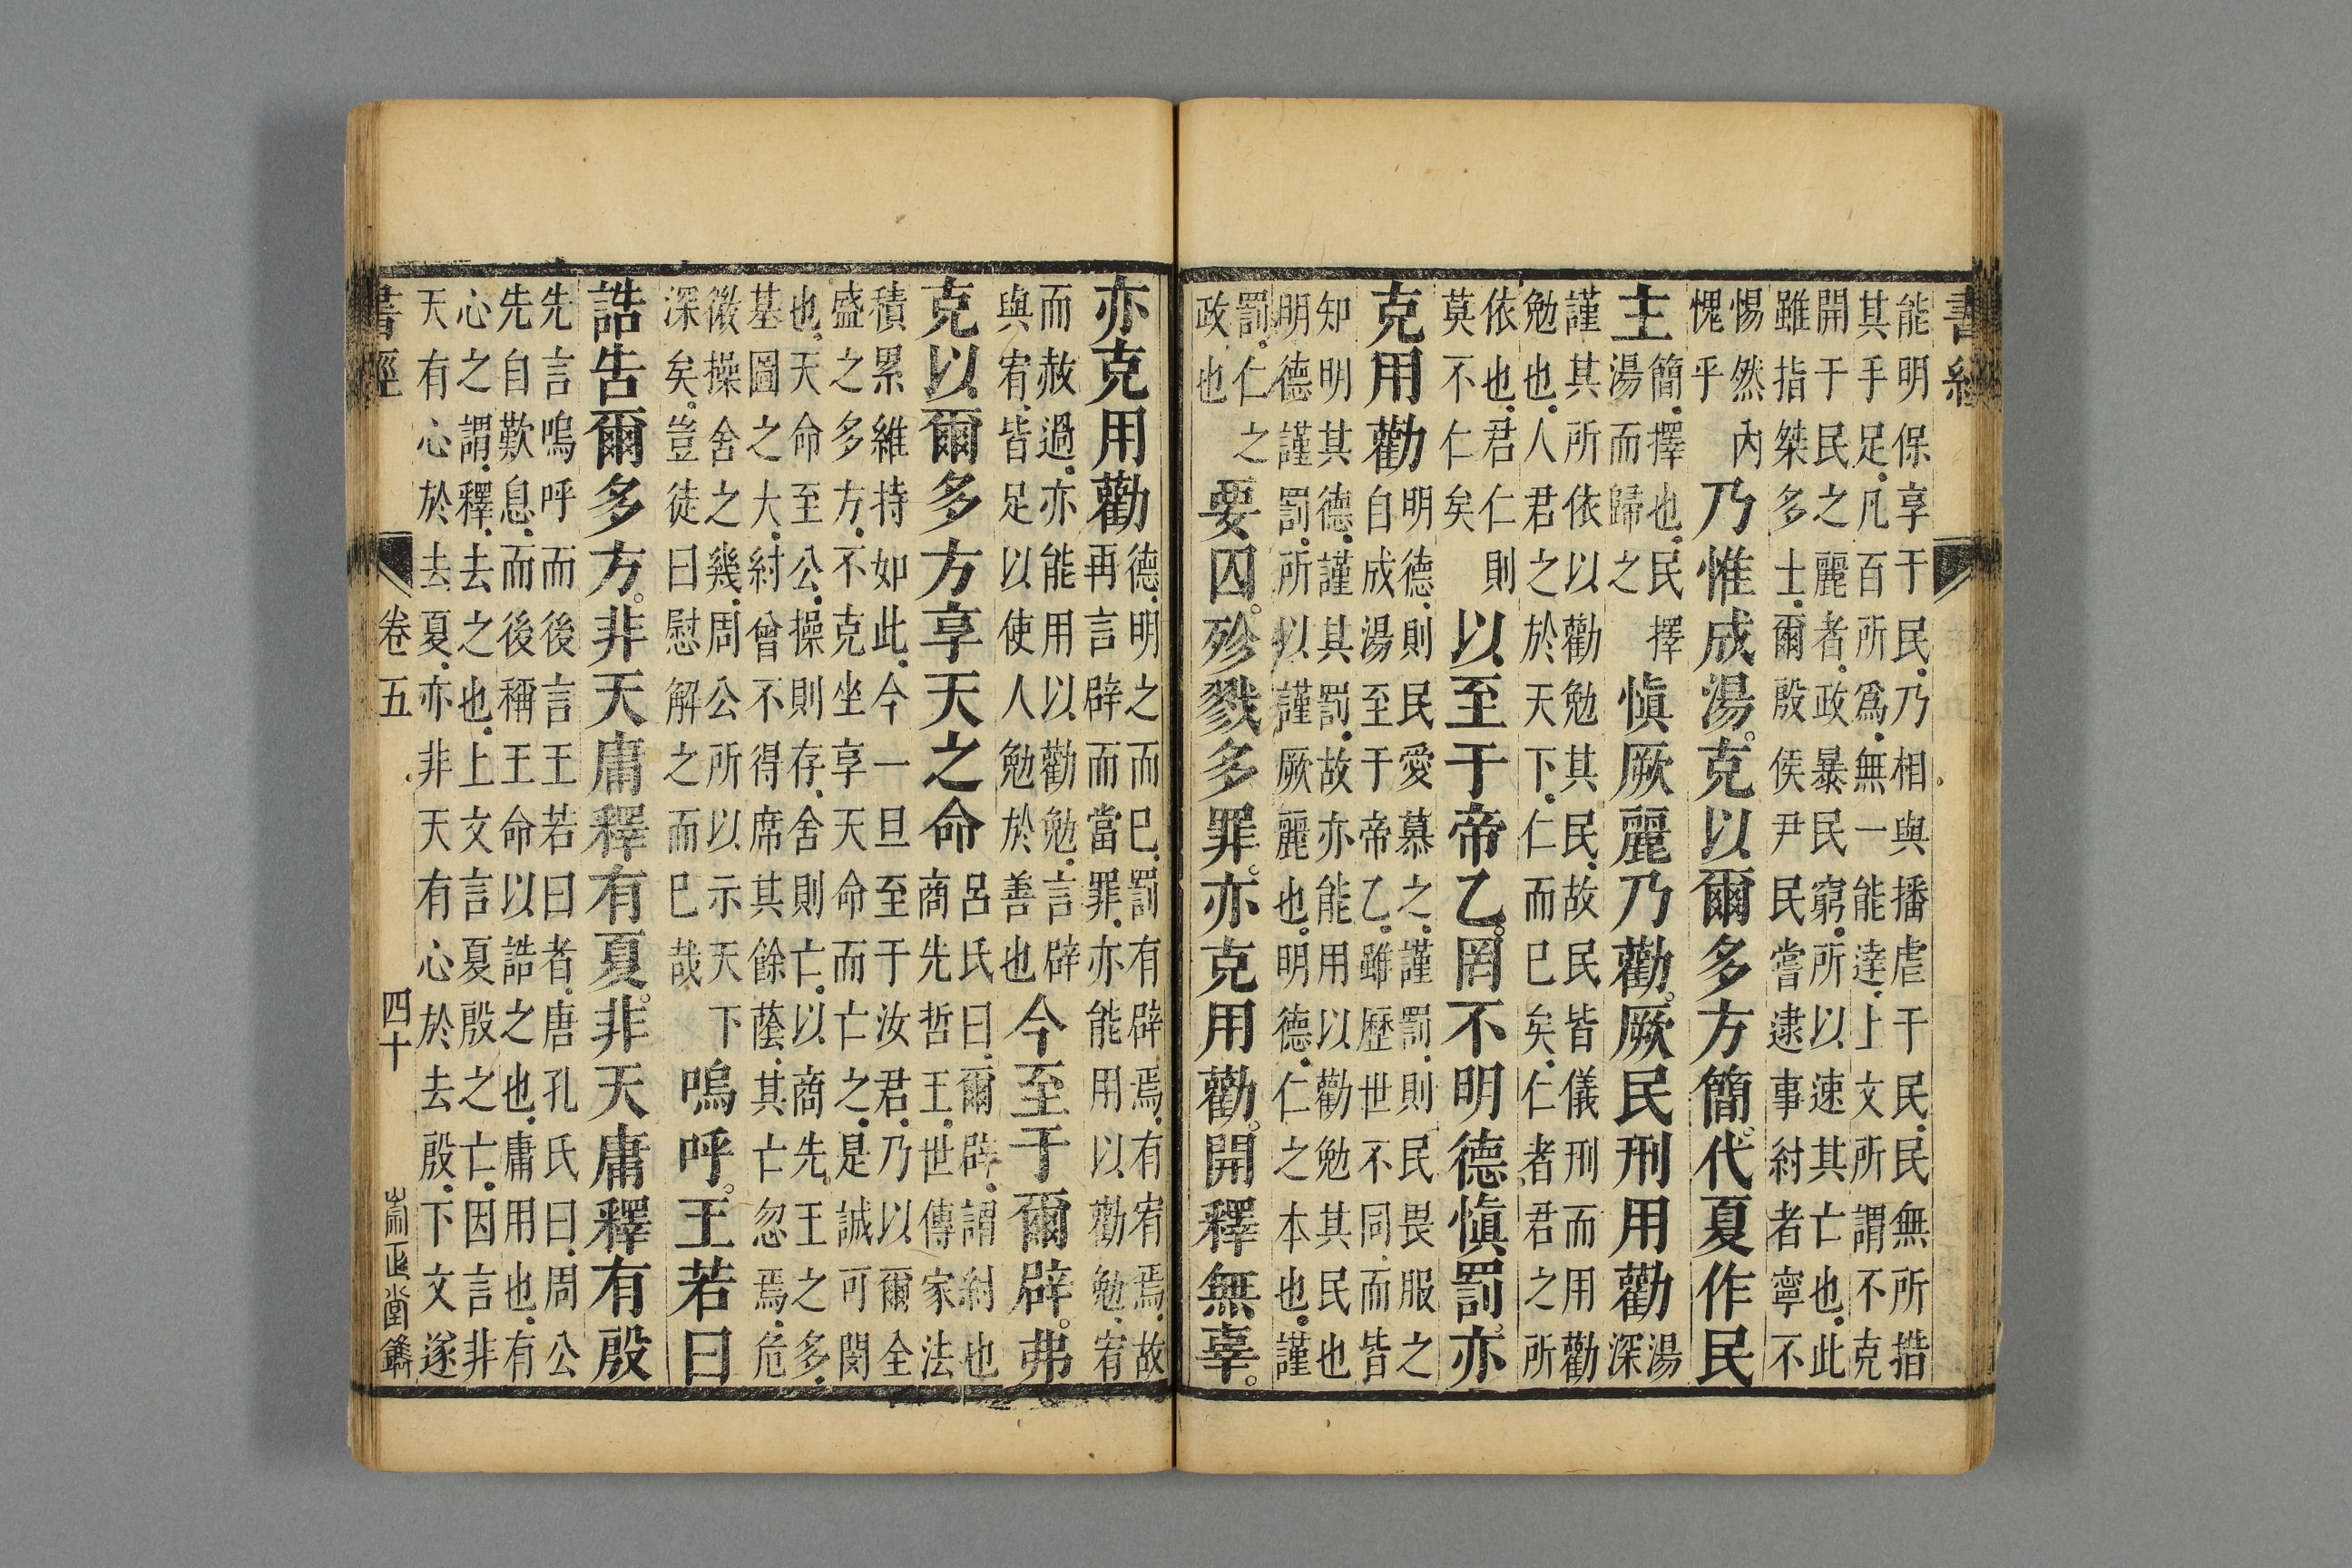 書經
能明保享于民乃相與播虐于民民無所措
其手足凡百所為無一能達上文所謂不克
開于民之麗者政暴民窮所以速其亡也此
雖指桀多士爾殷侯尹民嘗逮事紂者寧不
惕然內
愧乎
乃惟成湯克以爾多方簡代夏作民
主
簡擇也民擇
湯而歸之
慎厥麗乃勸厥民刑用勸
湯
深
謹其所依以勸勉其民故民皆儀刑而用勸
勉也人君之於天下仁而已矣仁者君之所
依也君仁則
莫不仁矣
以至于帝乙罔不明德慎罰亦
克用勸
明德則民愛慕之謹罰則民畏服之
自成湯至于帝乙雖歷世不同而皆
知明其德謹其罰故亦能用以勸勉其民也
明德謹罰所以謹厥麗也明德仁之本也謹
罰仁之
政也
要囚殄戮多罪亦克用勸開釋無辜
亦克用勸
德明之而已罰有辟焉有宥焉故
再言辟而當罪亦能用以勸勉宥
而赦過亦能用以勸勉言辟
與宥皆足以使人勉於善也
今至于爾辟弗
克以爾多方享天之命
呂氏曰爾辟謂紂也
商先哲王世傳家法
積累維持如此今一旦至于汝君乃以爾全
盛之多方不克坐享天命而亡之是誠可閔
也天命至公操則存舍則亡以商先王之多
基圖之大紂曾不得席其餘蔭其亡忽焉危
微操舍之幾周公所以示天下
深矣豈徒曰慰解之而已哉
嗚呼王若曰
誥告爾多方非天庸釋有夏非天庸釋有殷
先言嗚呼而後言王若曰者唐孔氏曰周公
先自歎息而後稱王命以誥之也庸用也有
心之謂釋去之也上文言夏殷之亡因言非
天有心於去夏亦非天有心於去殷下文遂
書經 卷五 四十 崇正堂鐫